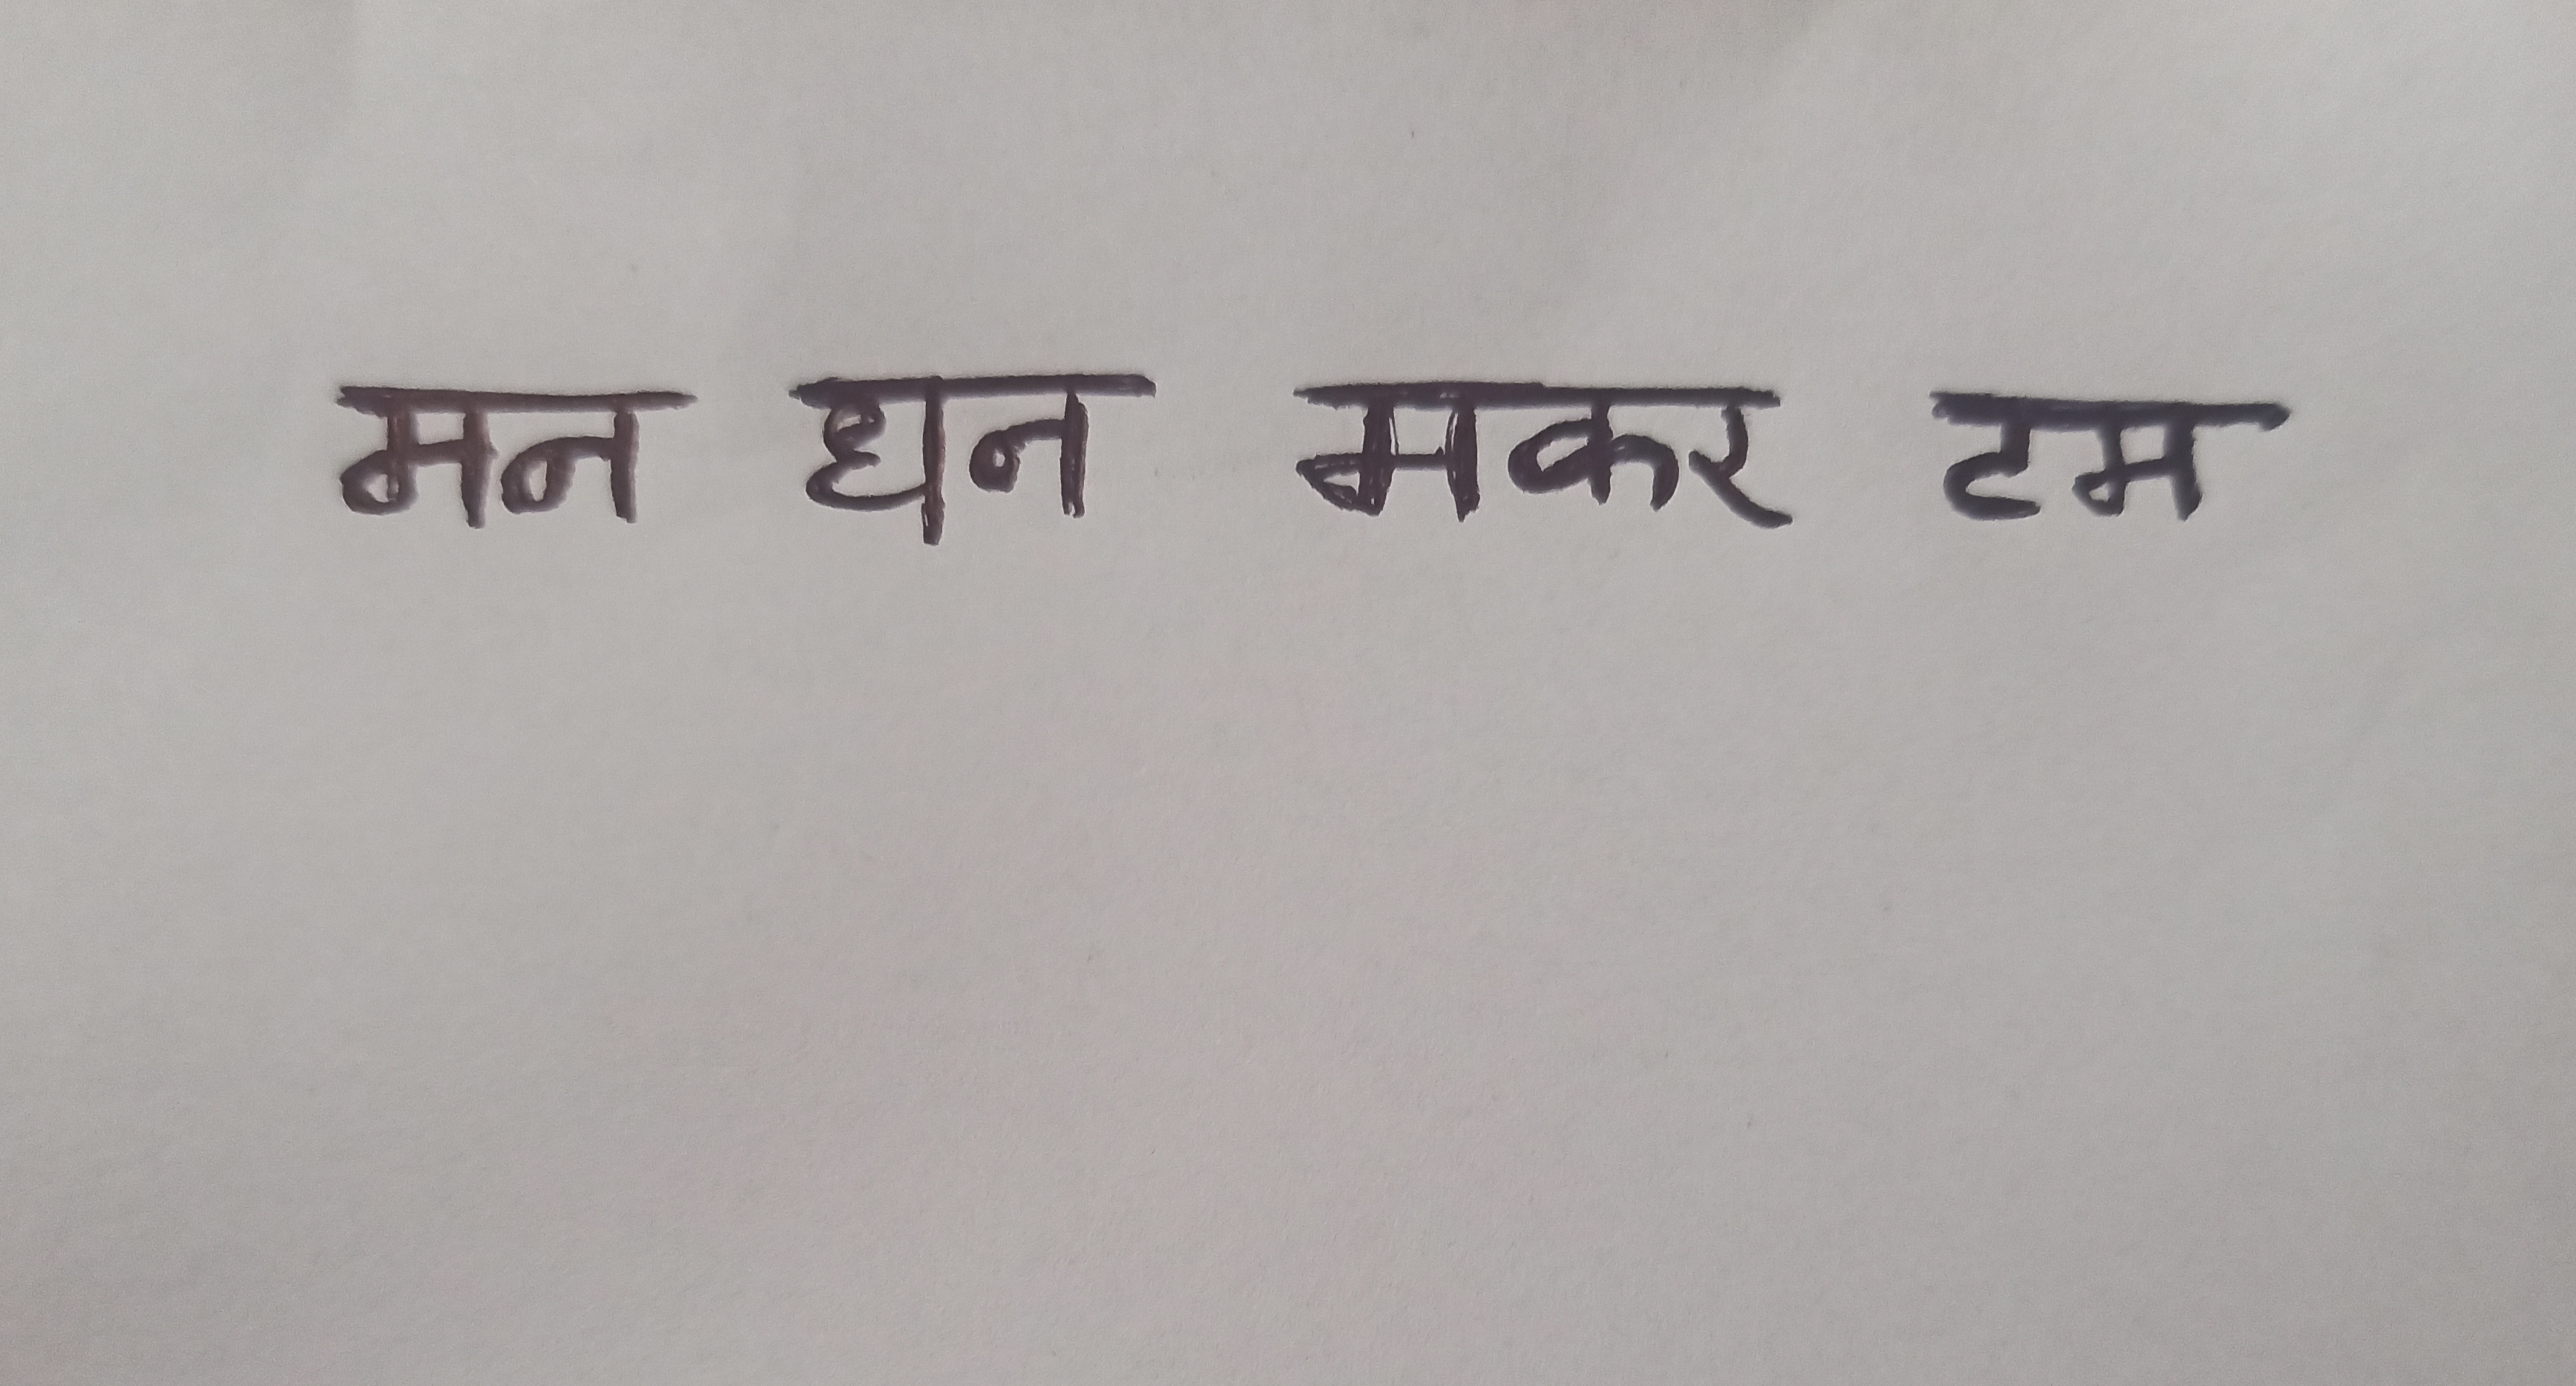 मन धन मकर टम